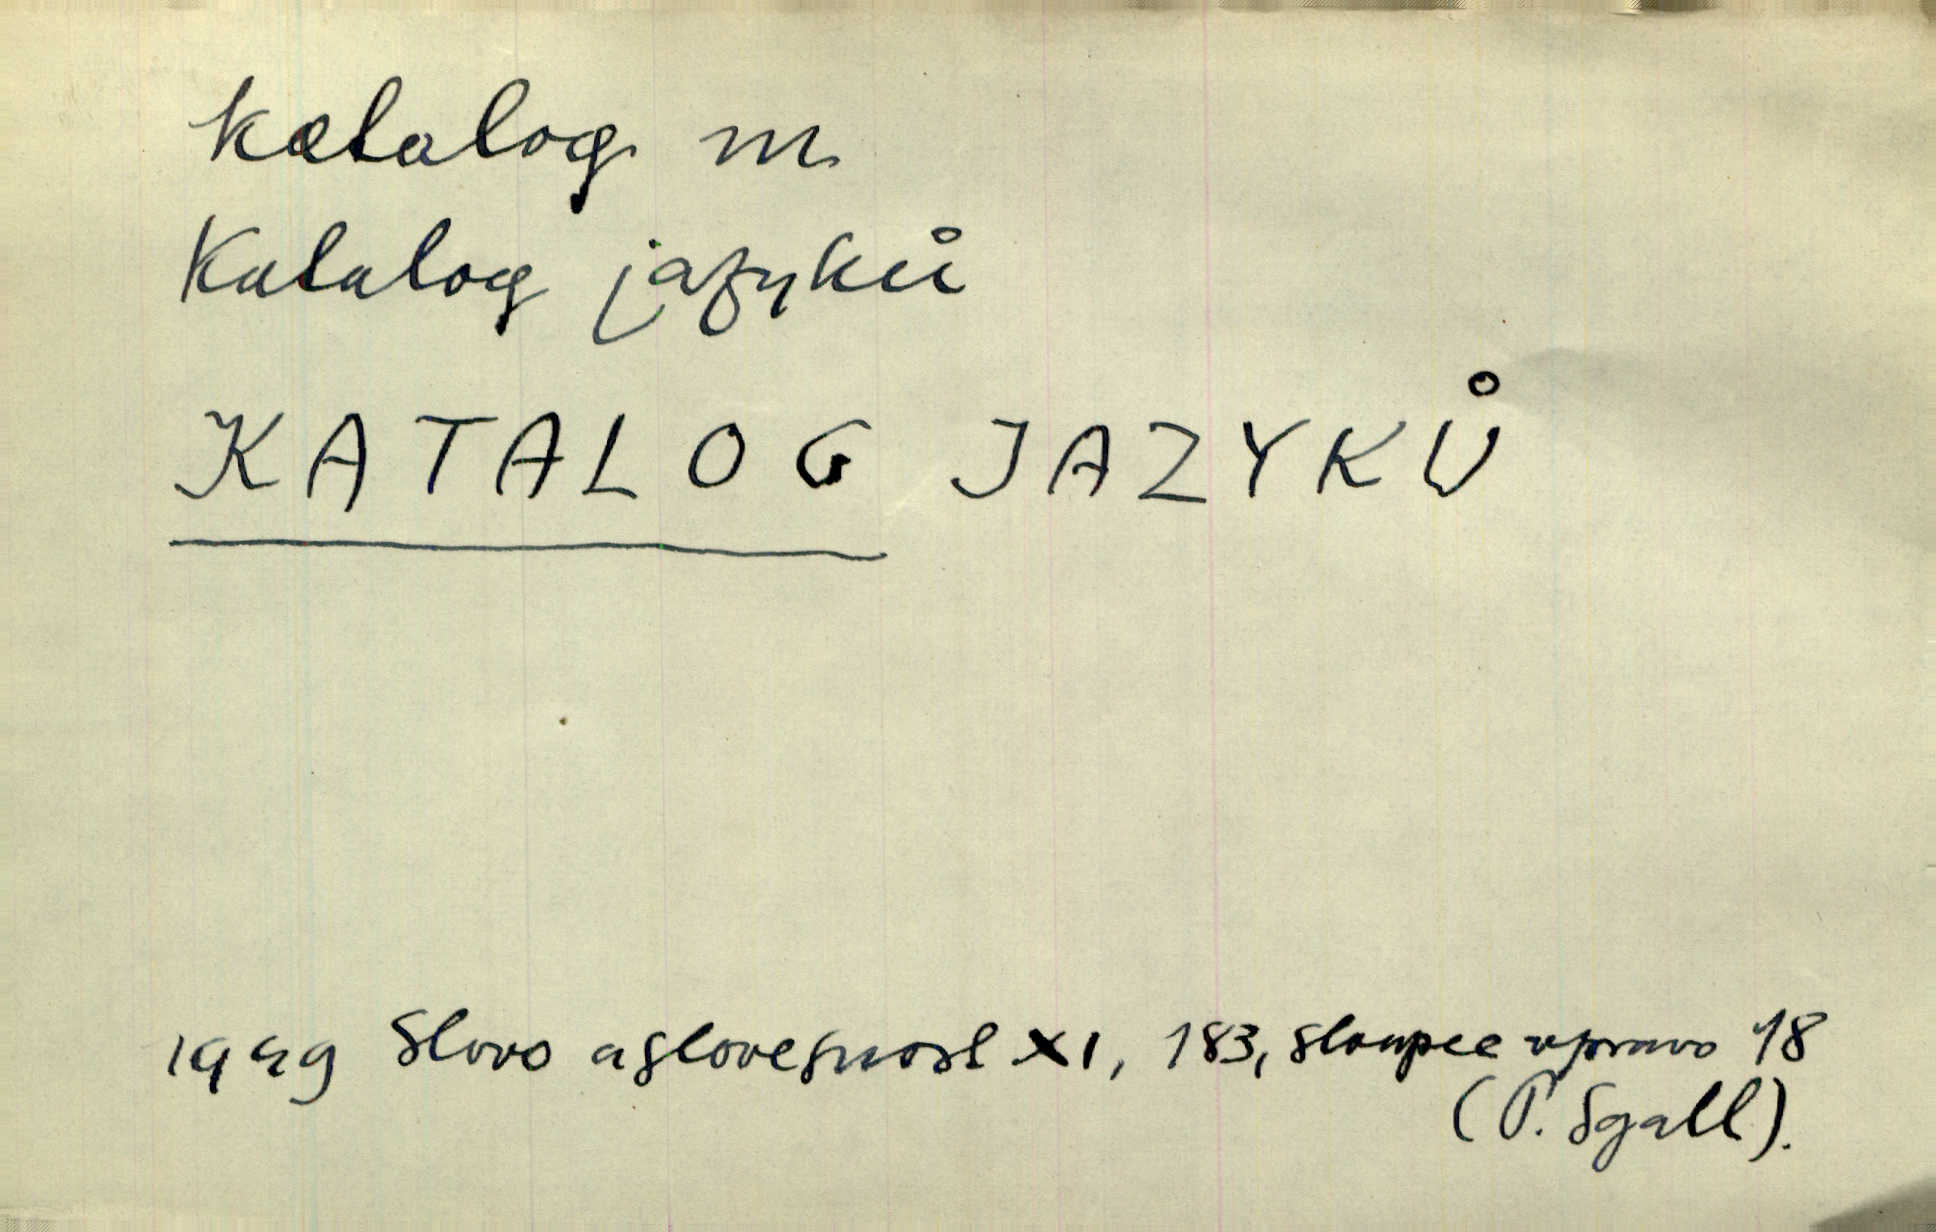 katalog m.
Katalog jazyků
KATALOG JAZYKŮ
1949 Slovo a slovesnost XI, 183, sloupec vpravo 18
(P. Sgall).